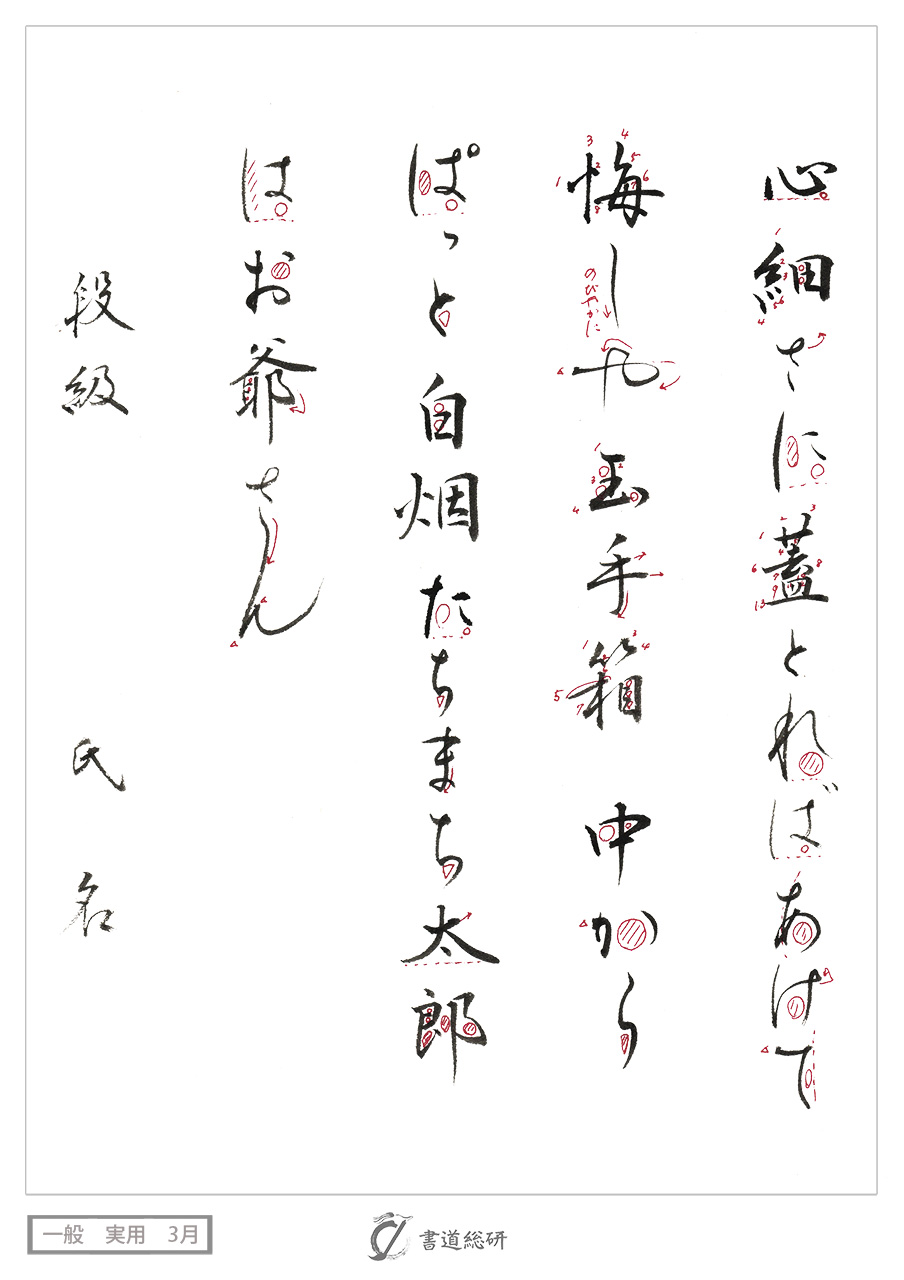 心細さに蓋とればあけて
悔しや玉手箱 中から
ぱっと白烟たちまち太郎
はお爺さん
段級 氏名
のびやかに
一般 実用 3月
書道総研